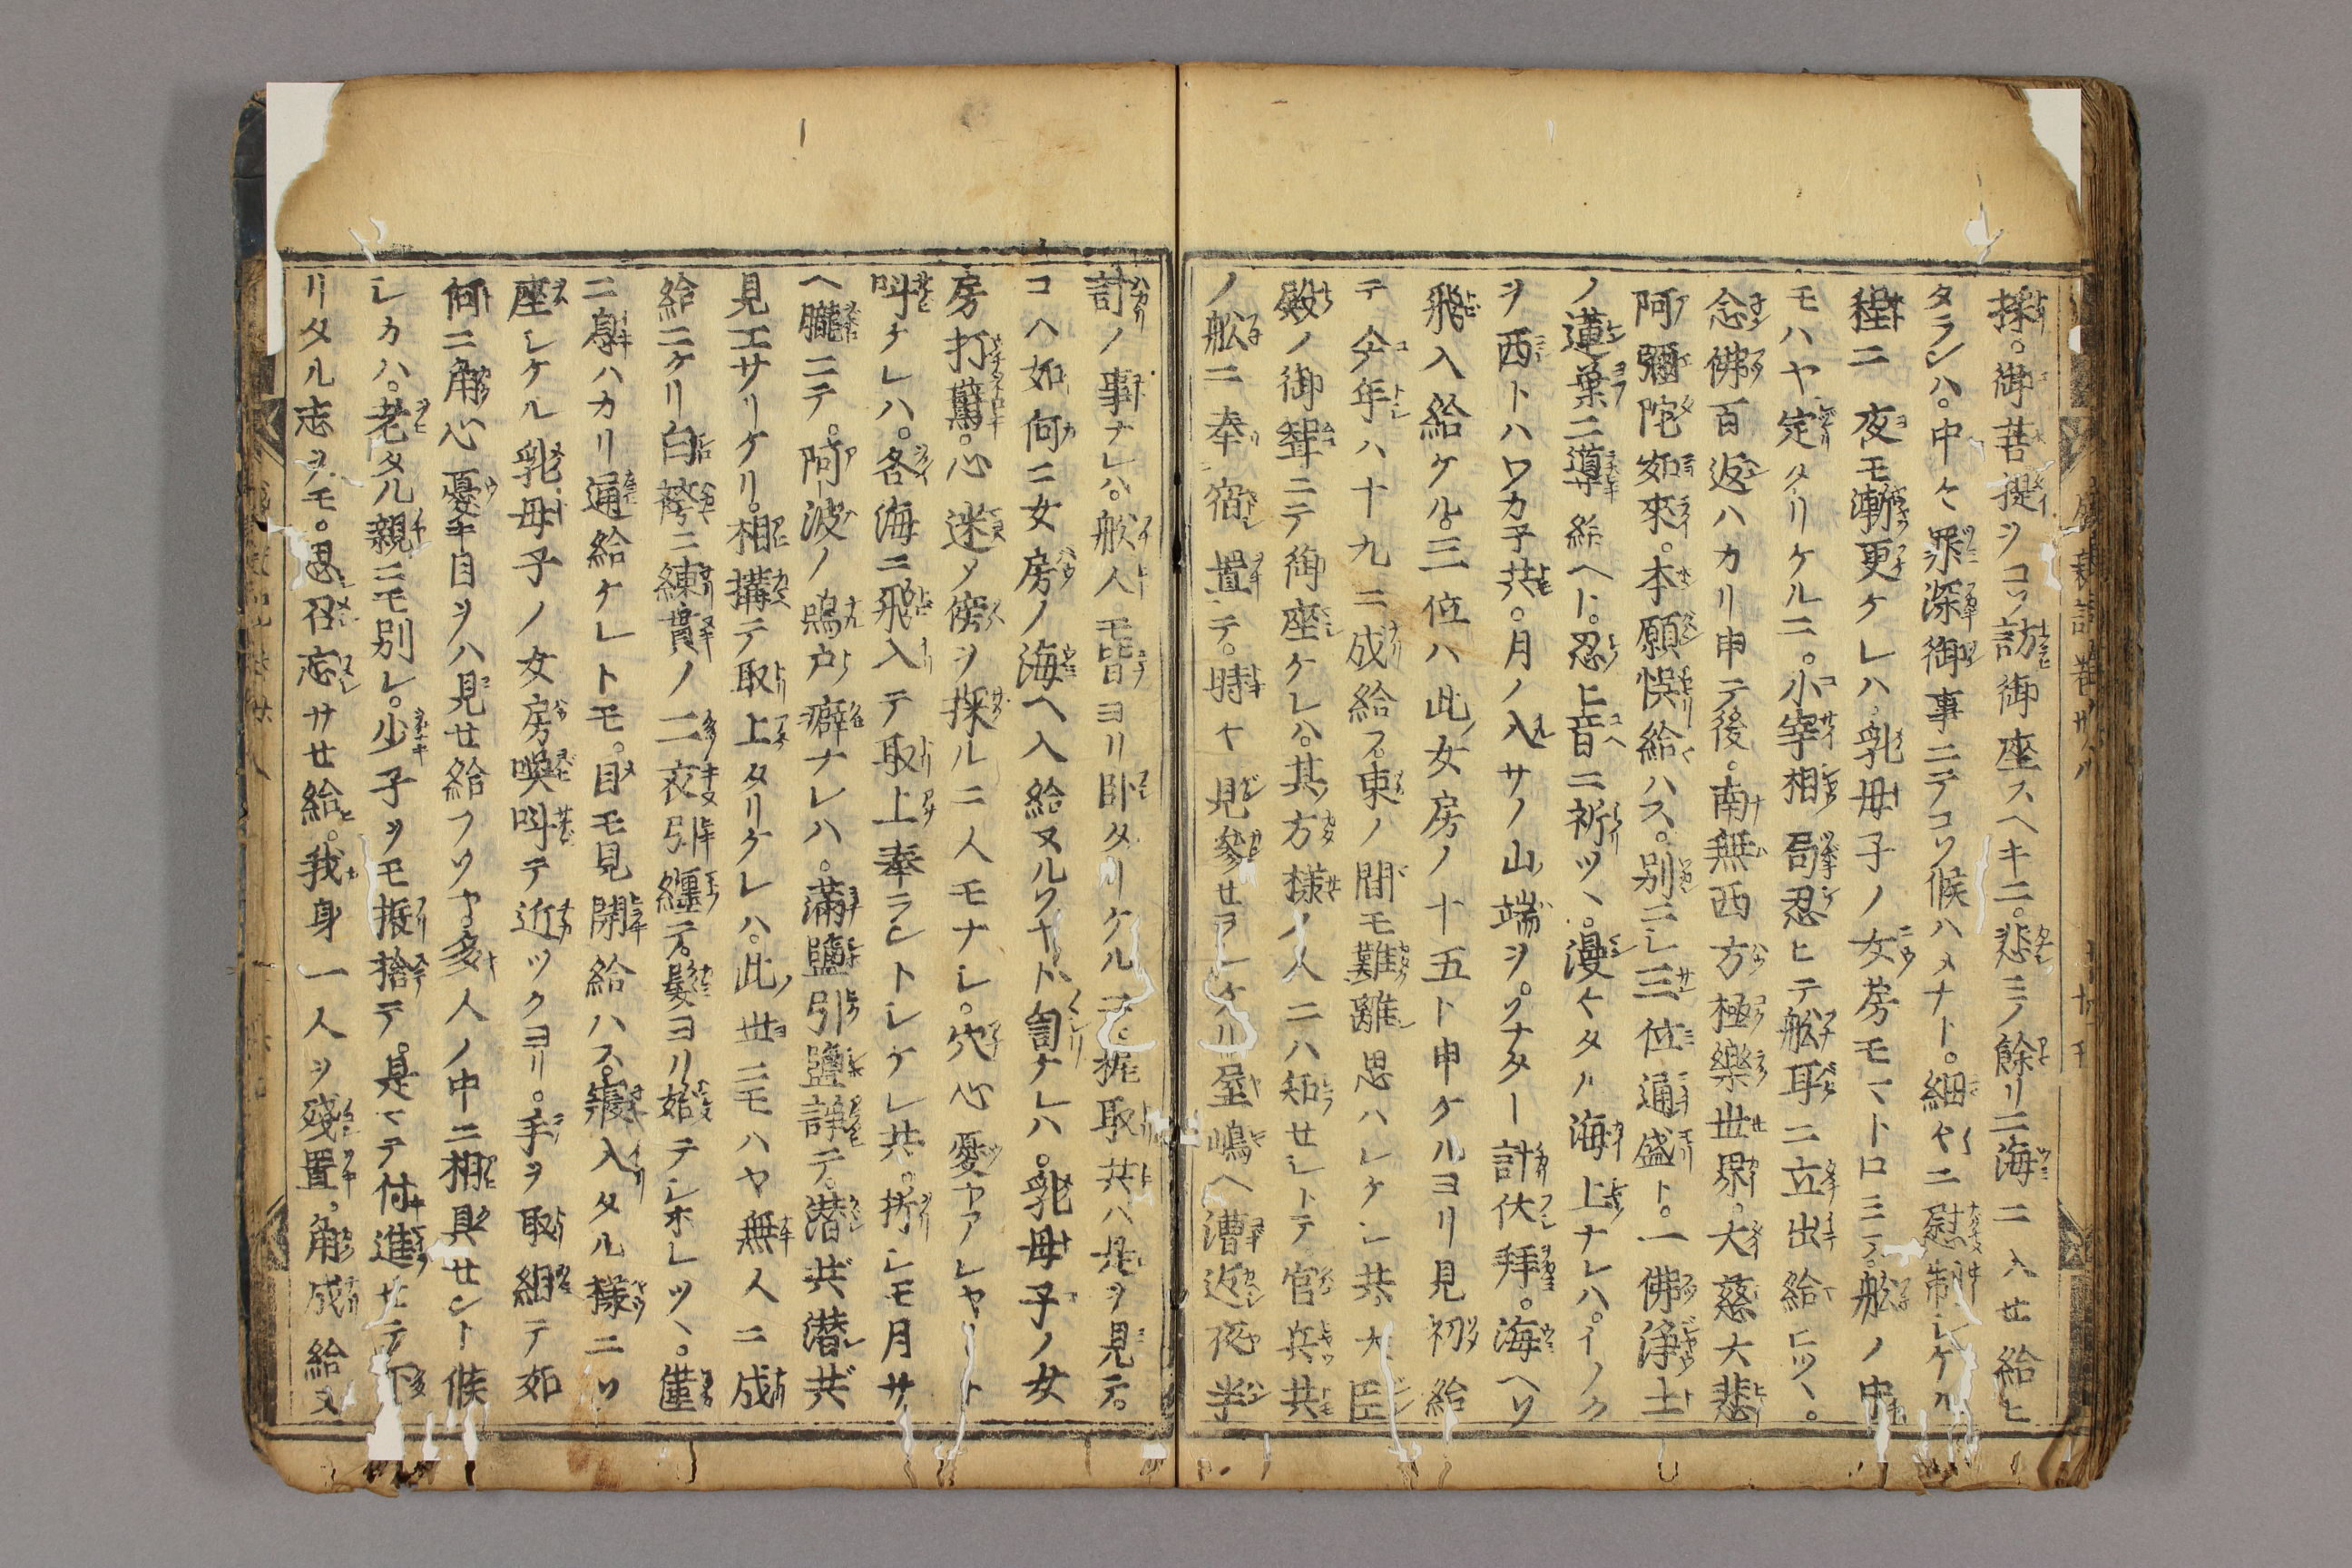 採。御菩提ヲコソ訪御座スヘキニ。悲ミノ餘リニ海ニ入セ給ヒ
タランハ。中々罪深御事ニテコソ候ハメナト。細ヤニ慰制シケル
程ニ夜モ漸更ケレハ。乳母子ノ女房モマトロミヌ。舩ノ中
モハヤ定タリケルニ。小宰相局忍ヒテ舩耳ニ立出給ヒツヽ。
念佛百返ハカリ申テ後。南無西方極樂世界。大慈大悲
阿彌陀如來。本願悞給ハス。別ニシ三位通盛ト。一佛淨土
ノ蓮葉ニ導給ヘト。忍ヒ音ニ祈ツヽ。漫々タル海上ナレハ。イツク
ヲ西トハワカ子共。月ノ入サノ山端ヲ。ソナタト計伏拜。海ヘソ
飛入給ケル。三位ハ此女房ノ十五ト申ケルヨリ見初給
テ今年ハ十九ニ成給フ。束ノ間モ難離思ハレケン共。大臣
殿ノ御聟ニテ御座ケレハ。其方樣ノ人ニハ知セシトテ官兵共
ノ舩ニ奉宿置テ。時々見參セラレケリ。屋嶋ヘ漕返夜半
計ノ事ナレハ。舩人モ皆ヨリ臥タリケルニ。梶取共ハ是ヲ見テ。
コハ如何ニ女房ノ海ヘ入給ヌルソヤト訇ケレハ。乳母子ノ女
房打驚。心迷メ傍ヲ探ルニ人モナシ。穴心憂ヤアレヤ〳〵ト
叫ケレハ。各海ニ飛入テ取上奉ラントシケレ共。折シモ月サ
ヘ朧ニテ。阿波ノ鳴戸癖ナレハ。滿鹽引鹽諍テ。潜共潜共
見エサリケリ。相搆テ取上タリケレハ。此世ニモハヤ無人ニ成
給ニケリ白袴ニ練貫ノ二衣引纏テ。髮ヨリ始テシホレツヽ。僅
ニ息ハカリ通給ケレトモ。目モ見開給ハス。寢入タル樣ニソ
座シケル乳母子ノ女房喚叫テ近ツクヨリ。手ヲ取組テ如
何ニ角心憂キ目ヲハ見セ給フソヤ。多人ノ中ニ相具セント候
シカハ。老タル親ニモ別レ。少子ヲモ振捨テ。是マテ付進セテ下
リタル志ヲモ。思召忘サセ給ヒ。我身一人ヲ殘置。角成給ヌ